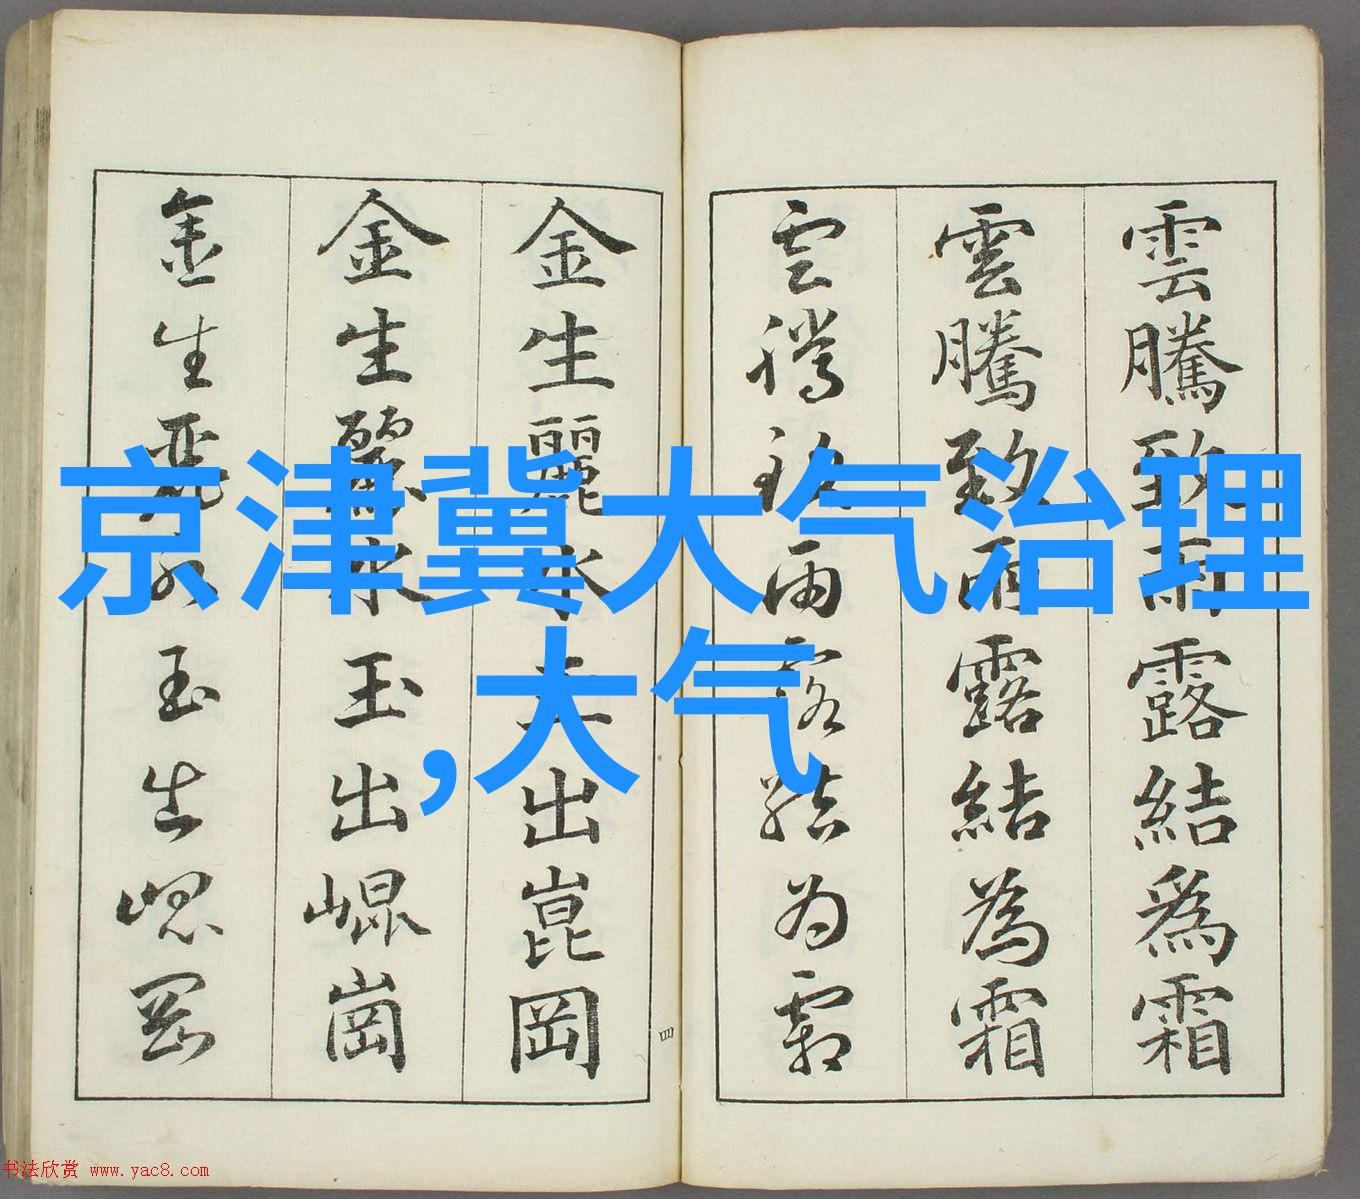 雲騰致雨露結為霜
雲騰致雨露結為霜
雲騰致雨露結為霜
金生麗水玉出崑岡
金生麗水玉出崐崗
金生麗水玉出崐岡
四
京津冀大气治理
,大气
书法欣赏 www.yac8.com